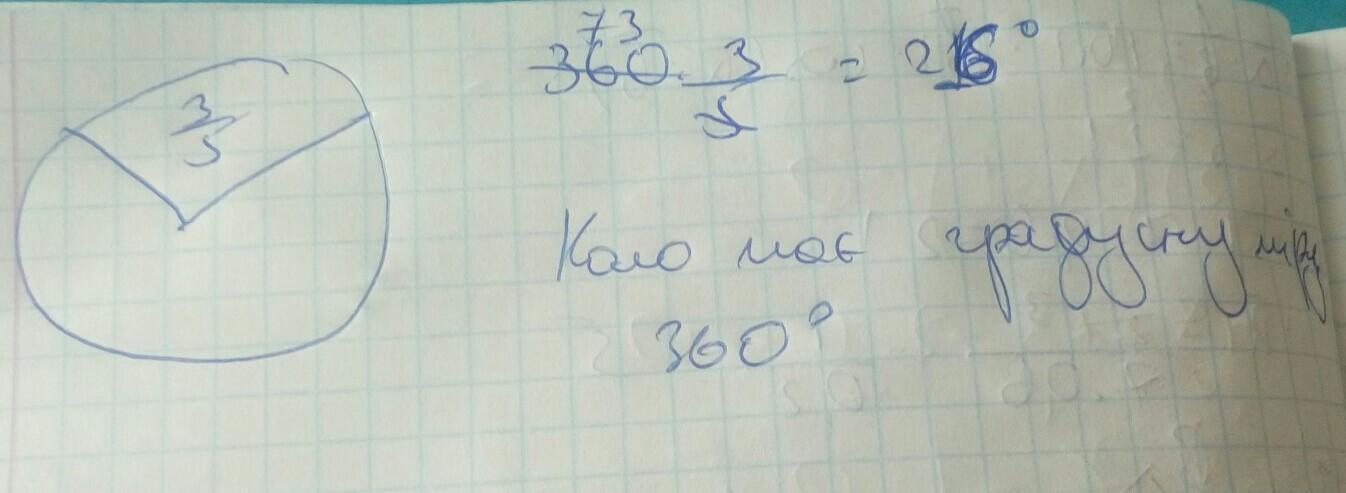 73
360 · 3/5 = 216°
3/5
Коло має градусну міру
360°